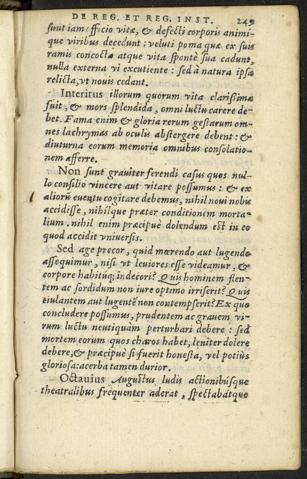 DE REG. ET REG. INST. 249
sunt iam officio vitæ, & defecti corporis animi-
que viribus decedunt: veluti poma quæ ex suis
ramis concocta atque vita sponte sua cadunt,
nulla externa vi excutiente: sed à natura ipsa
relicta, vt nouis cedant.
Interitus illorum quorum vita clarissima
fuit, & mors splendida, omni luctu carere de-
bet. Fama enim & gloria rerum gestarum om-
nes lachrymas ab oculis abstergere debent: &
diuturna eorum memoria omnibus consolatio-
nem afferre.
Non sunt grauiter ferendi casus quos nul-
lo consilio vincere aut vitare possumus: & ex
aliorũ euentu cogitare debemus, nihil noui nobis
accidisse, nihilque præter conditionem morta-
lium. nihil enim præcipuè dolendum est in eo
quod accidit vniuersis.
Sed age precor, quid mœrendo aut lugendo
assequimur, nisi vt leuiores esse videamur, &
corpore habitúq; indecori? Quis hominem flen-
tem ac sordidum non iure optimo irriserit? Quis
eiulantem aut lugentẽ non contempserit? Ex quo
concludere possumus, prudentem ac grauem vi-
rum luctu neutiquàm perturbari debere: sed
mortem eorum quos charos habet, leniter dolere
debere, & præcipuè si fuerit honesta, vel potiùs
gloriosa: acerba tamen durior.
Octauius Augustus ludis actionibúsque
theatralibus frequenter aderat, spectabátque